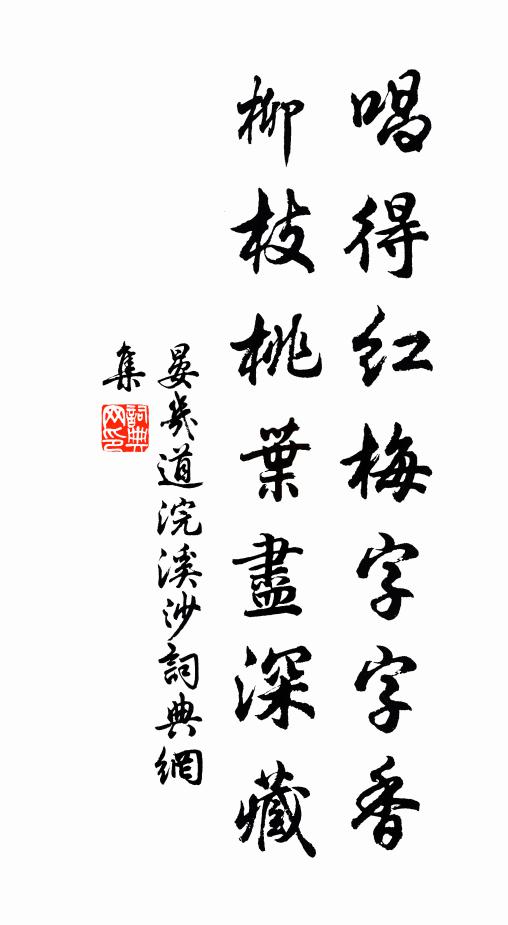 唱得紅梅字字香
柳枝桃葉盡深藏
晏幾道浣溪沙詞典網
集
詞典網印